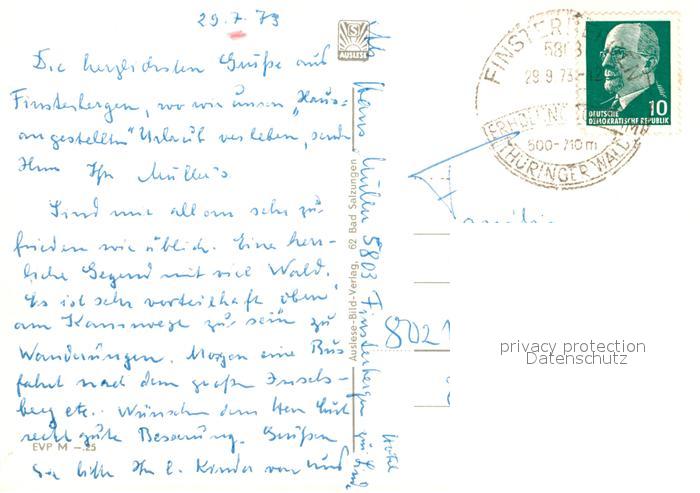 29.7.73
Die herzlichsten Grüße aus
Finsterbergen, wo wir unsern "Haus=
angestellten" Urlaub verleben, sendet
Ihnen Ihr Müller's
Sind mit allem sehr zu-
frieden wie üblich. Eine herr-
liche Gegend mit viel Wald.
Es ist sehr vorteilhaft oben
am Kammwege zu sein zu
Wanderungen. Morgen eine Bus
fahrt nach dem großen Insels-
berg etc. Wünschen dem Herrn
recht gute Besserung. Grüßen
Sie bitte Ihr l. Kinder von uns
EVP M –.25
AUSLESE
Auslese-Bild-Verlag, 62 Bad Salzungen
Hans Müller 5803 Finsterbergen
Hotel zur Linde
FINSTERBERGEN
5803
29.9.73-12
ERHOLUNG
500-710m
THÜRINGER WALD
DEUTSCHE
DEMOKRATISCHE REPUBLIK
10
Familie
8021
privacy protection
Datenschutz